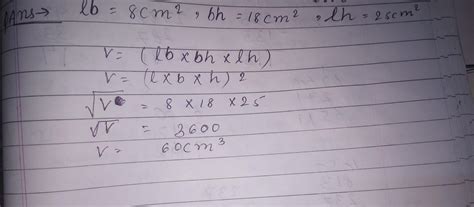 Ans→ lb = 8cm², bh = 18cm², lh = 25cm²
V = (lb × bh × lh)
V = (l × b × h) 2
√V = 8 × 18 × 25
√V = 3600
V = 60cm³